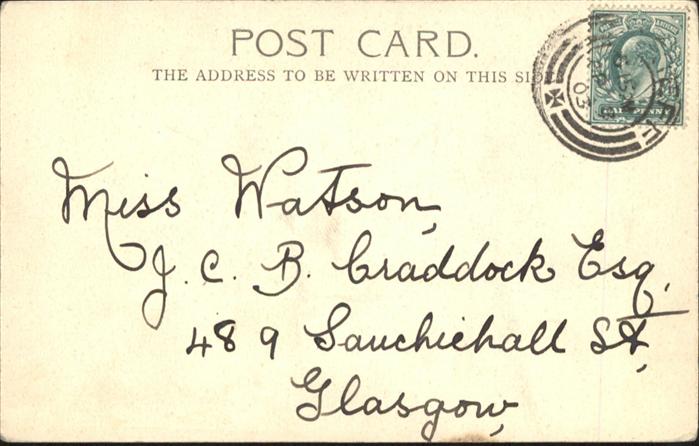 POST CARD.
THE ADDRESS TO BE WRITTEN ON THIS SIDE
Miss Watson,
J. C. B. Craddock Esq.
489 Sauchiehall St,
Glasgow,